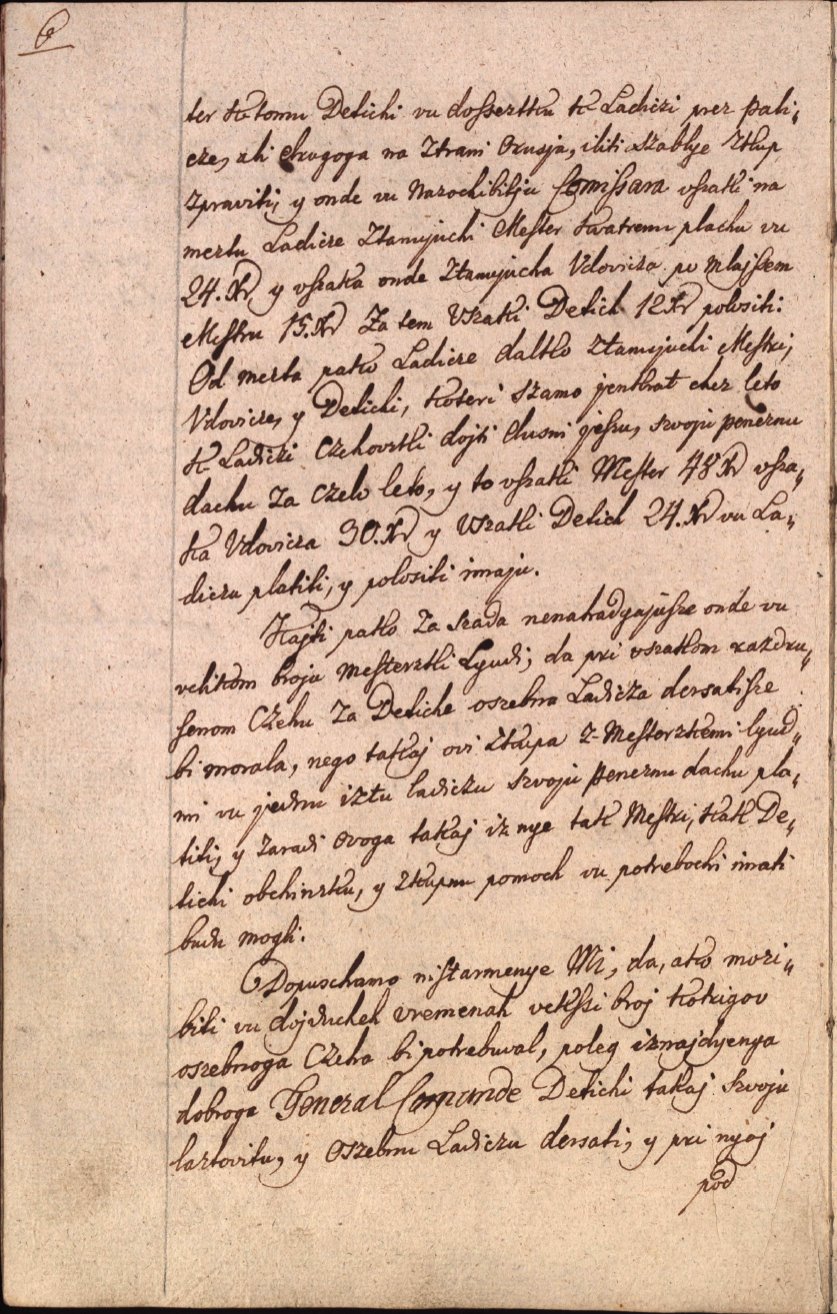 6
ter k-tomu Detichi vu dosseztku k-Ladiczi prez pali„
cze, ali drugoga na ztrani Orusja, iliti Szablye Zkup
zpraviti, y onde vu Nazochibitju Comissara vszaki na
meztu Ladicze Ztanujuchi Meßter kvatrenu plachu vu
24. Xr, y vszaka onde Ztanujucha Vdovicza po mlajssem
Meßtru 15. Xr Za tem Vszaki Detich 12 Xr polositi:
Od mezta pako Ladicze dalko ztanujuchi Meßtri,
Vdovicze, y Detichi, koteri szamo jenkrat chez leto
k-Ladiczi Czehovzki dojti dusni jeszu, szvoju peneznu
dachu za czelo leto, y to vszaki Meßter 48 Xr vsza„
ka Vdovicza 30. Xr y Vszaki Detich 24. Xr vu La„
diczu platiti, y polositi imaju.
Kajti pako Za szada nenahadyajusze onde vu
velikom broju Meßterzki Lyudi, da pri vszakom razdru„
senom Czehu Za Detiche oszebna Ladicza dersatisze
bi morala, nego takaj ovi zkupa z-Meßterzkemi lyud„
mi vu jednu iztu ladiczu szvoju peneznu dachu pla„
titi, y zaradi ovoga takaj iz nye tak Meßtri, kak De„
tichi obchinzku, y zkupnu pomoch vu potrebochi imati
budu mogli.
Dopuschamo nistarmenye Mi, da, ako mozi„
biti vu dojduchch vremenah vekssi broj kotrigov
oszebnoga Czeha bi potrebuval, poleg iznajdyenya
dobroga General Comande Detichi takaj szvoju
laztovitu, y oszebnu Ladiczu dersati, y pri nyoj
pod